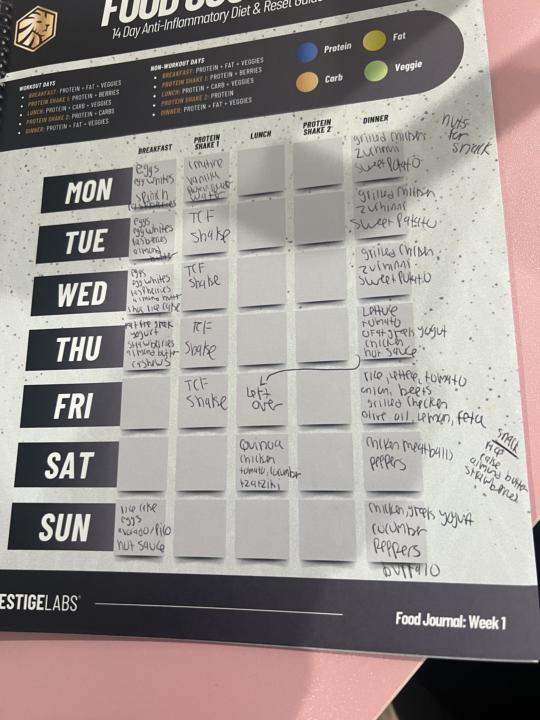 14 Day Anti-Inflammatory Diet & Reset
Protein
Fat
Carb
Veggie
WORKOUT DAYS
BREAKFAST: PROTEIN + FAT + VEGGIES
PROTEIN SHAKE 1: PROTEIN + BERRIES
LUNCH: PROTEIN + CARB + VEGGIES
PROTEIN SHAKE 2: PROTEIN + CARBS
DINNER: PROTEIN + FAT + VEGGIES
NON-WORKOUT DAYS
BREAKFAST: PROTEIN + FAT + VEGGIES
PROTEIN SHAKE 1: PROTEIN + BERRIES
LUNCH: PROTEIN + CARB + VEGGIES
PROTEIN SHAKE 2: PROTEIN
DINNER: PROTEIN + FAT + VEGGIES
BREAKFAST
PROTEIN SHAKE 1
LUNCH
PROTEIN SHAKE 2
DINNER
nuts
for
snack
MON
eggs
egg whites
vanilla
water
grilled chicken
zucchini
sweet potato
TUE
eggs
egg whites
almond
TCF
shake
grilled chicken
zucchini
sweet potato
WED
eggs
egg whites
almond butter
rice cake
TCF
shake
grilled chicken
zucchini
sweet potato
THU
yogurt
strawberries
almond butter
cashews
TCF
shake
Lettuce
tomato
greek yogurt
chicken
hot sauce
FRI
TCF
shake
Left
over
rice, lettuce, tomato
onion, beets
grilled chicken
olive oil, lemon, feta
SAT
Quinoa
chicken
tomato, cucumber
tzatziki
chicken meatballs
peppers
snack
rice
cake
almond butter
strawberries
SUN
rice cake
eggs
avocado/pico
hot sauce
chicken, greek yogurt
cucumber
peppers
buffalo
ESTIGELABS
Food Journal: Week 1